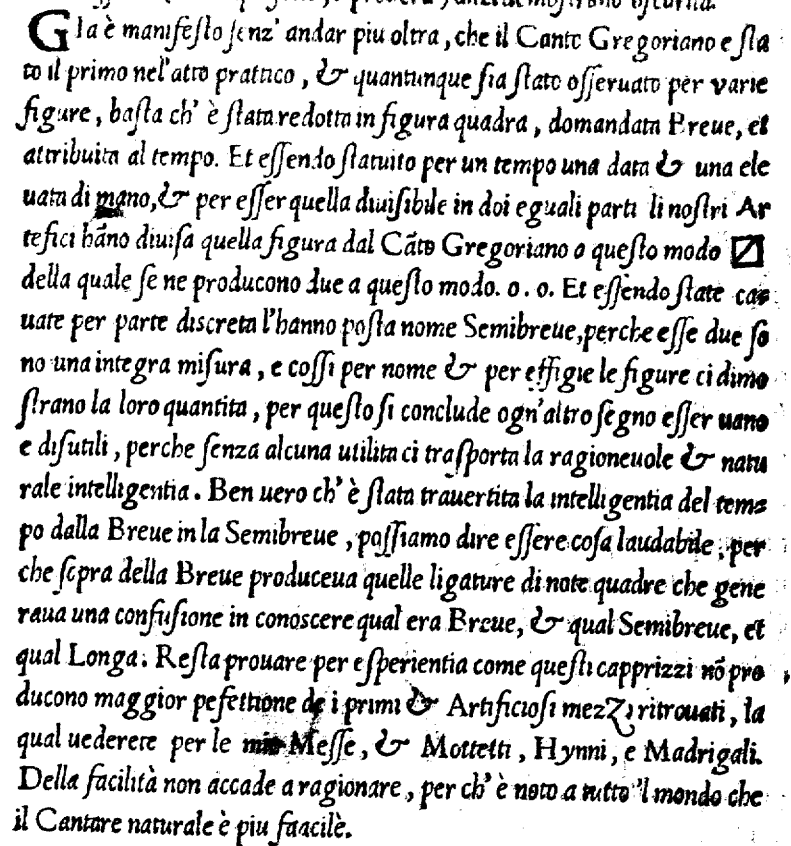 GIa è manifeſto ſenz' andar piu oltra, che il Canto Gregoriano e ſta
to il primo nel'atto prattico, & quantunque ſia ſtato oſſeruato per varie
figure, baſta ch' è ſtata redotta in figura quadra, domandata Breue, et
attribuita al tempo. Et eſſendo ſtatuito per un tempo una data & una ele
uata di mano, & per eſſer quella diuiſibile in doi eguali parti li noſtri Ar
tefici hãno diuiſa quella figura dal Cãto Gregoriano a queſto modo
della quale ſe ne producono due a queſto modo. o. o. Et eſſendo ſtate cas
uate per parte discreta l'hanno poſta nome Semibreue, perche eſſe due ſo
no una integra miſura, e coſſi per nome & per effigie le figure ci dimo
ſtrano la loro quantita, per queſto ſi conclude ogn'altro ſegno eſſer uano
e diſutili, perche ſenza alcuna utilita ci traſporta la ragioneuole & natu
rale intelligentia. Ben uero ch' è ſtata trauertita la intelligentia del tems
po dalla Breue in la Semibreue, poſſiamo dire eſſere coſa laudabile, per
che ſopra della Breue produceua quelle ligature di note quadre che gene
raua una confuſione in conoscere qual era Breue, & qual Semibreue, et
qual Longa. Reſta prouare per eſperientia come queſti capprizzi nõ pro
ducono maggior pefettione de i primi & Artificioſi mezzi ritrouati, la
qual uederete per le mie Meſſe, & Mottetti, Hynni, e Madrigali.
Della facilità non accade a ragionare, per ch' è noto a tutto 'l mondo che
il Cantare naturale è piu faacilè.